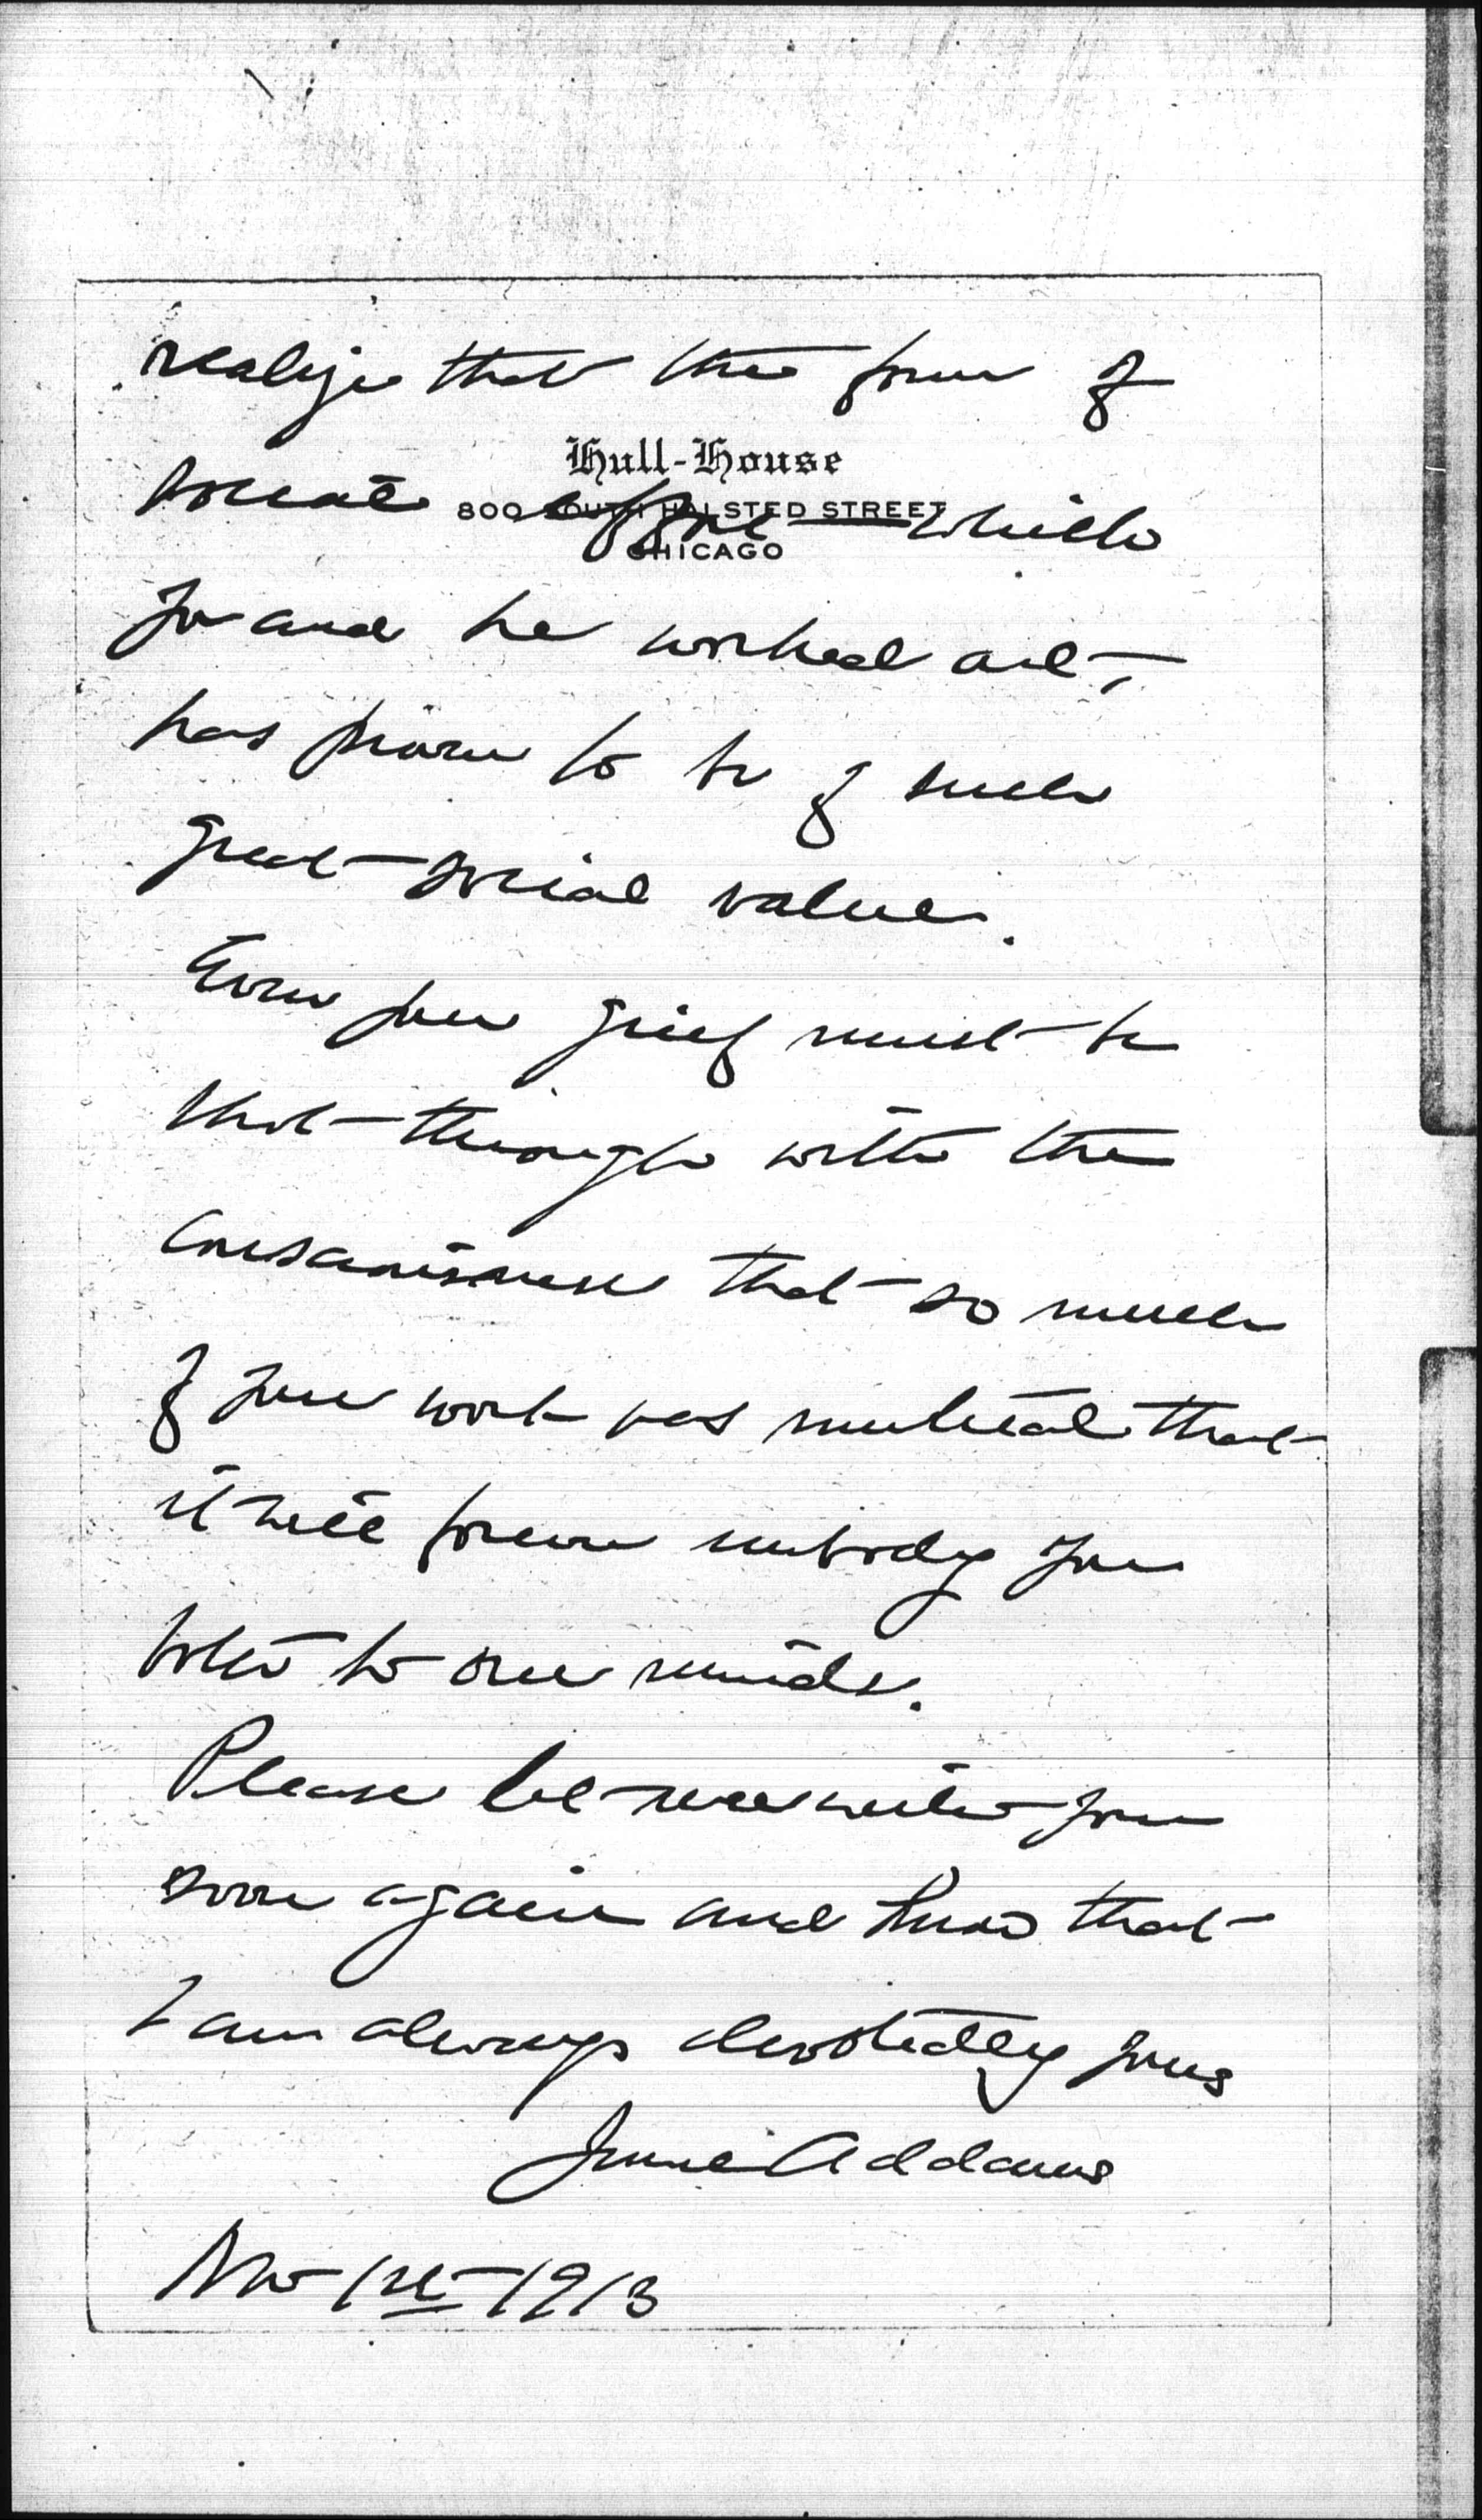 realize that the form of
Hull-House
social effort which
800 SOUTH HALSTED STREET
CHICAGO
you and he worked out,
has proven to be of such
great social value.
Even your grief must be
shot through with the
consciousness that so much
of your work was mutual that
it will forever embody you
both to our minds.
Please let me see you
soon again and know that
I am always devotedly yours
Jane Addams
Nov 1st 1913